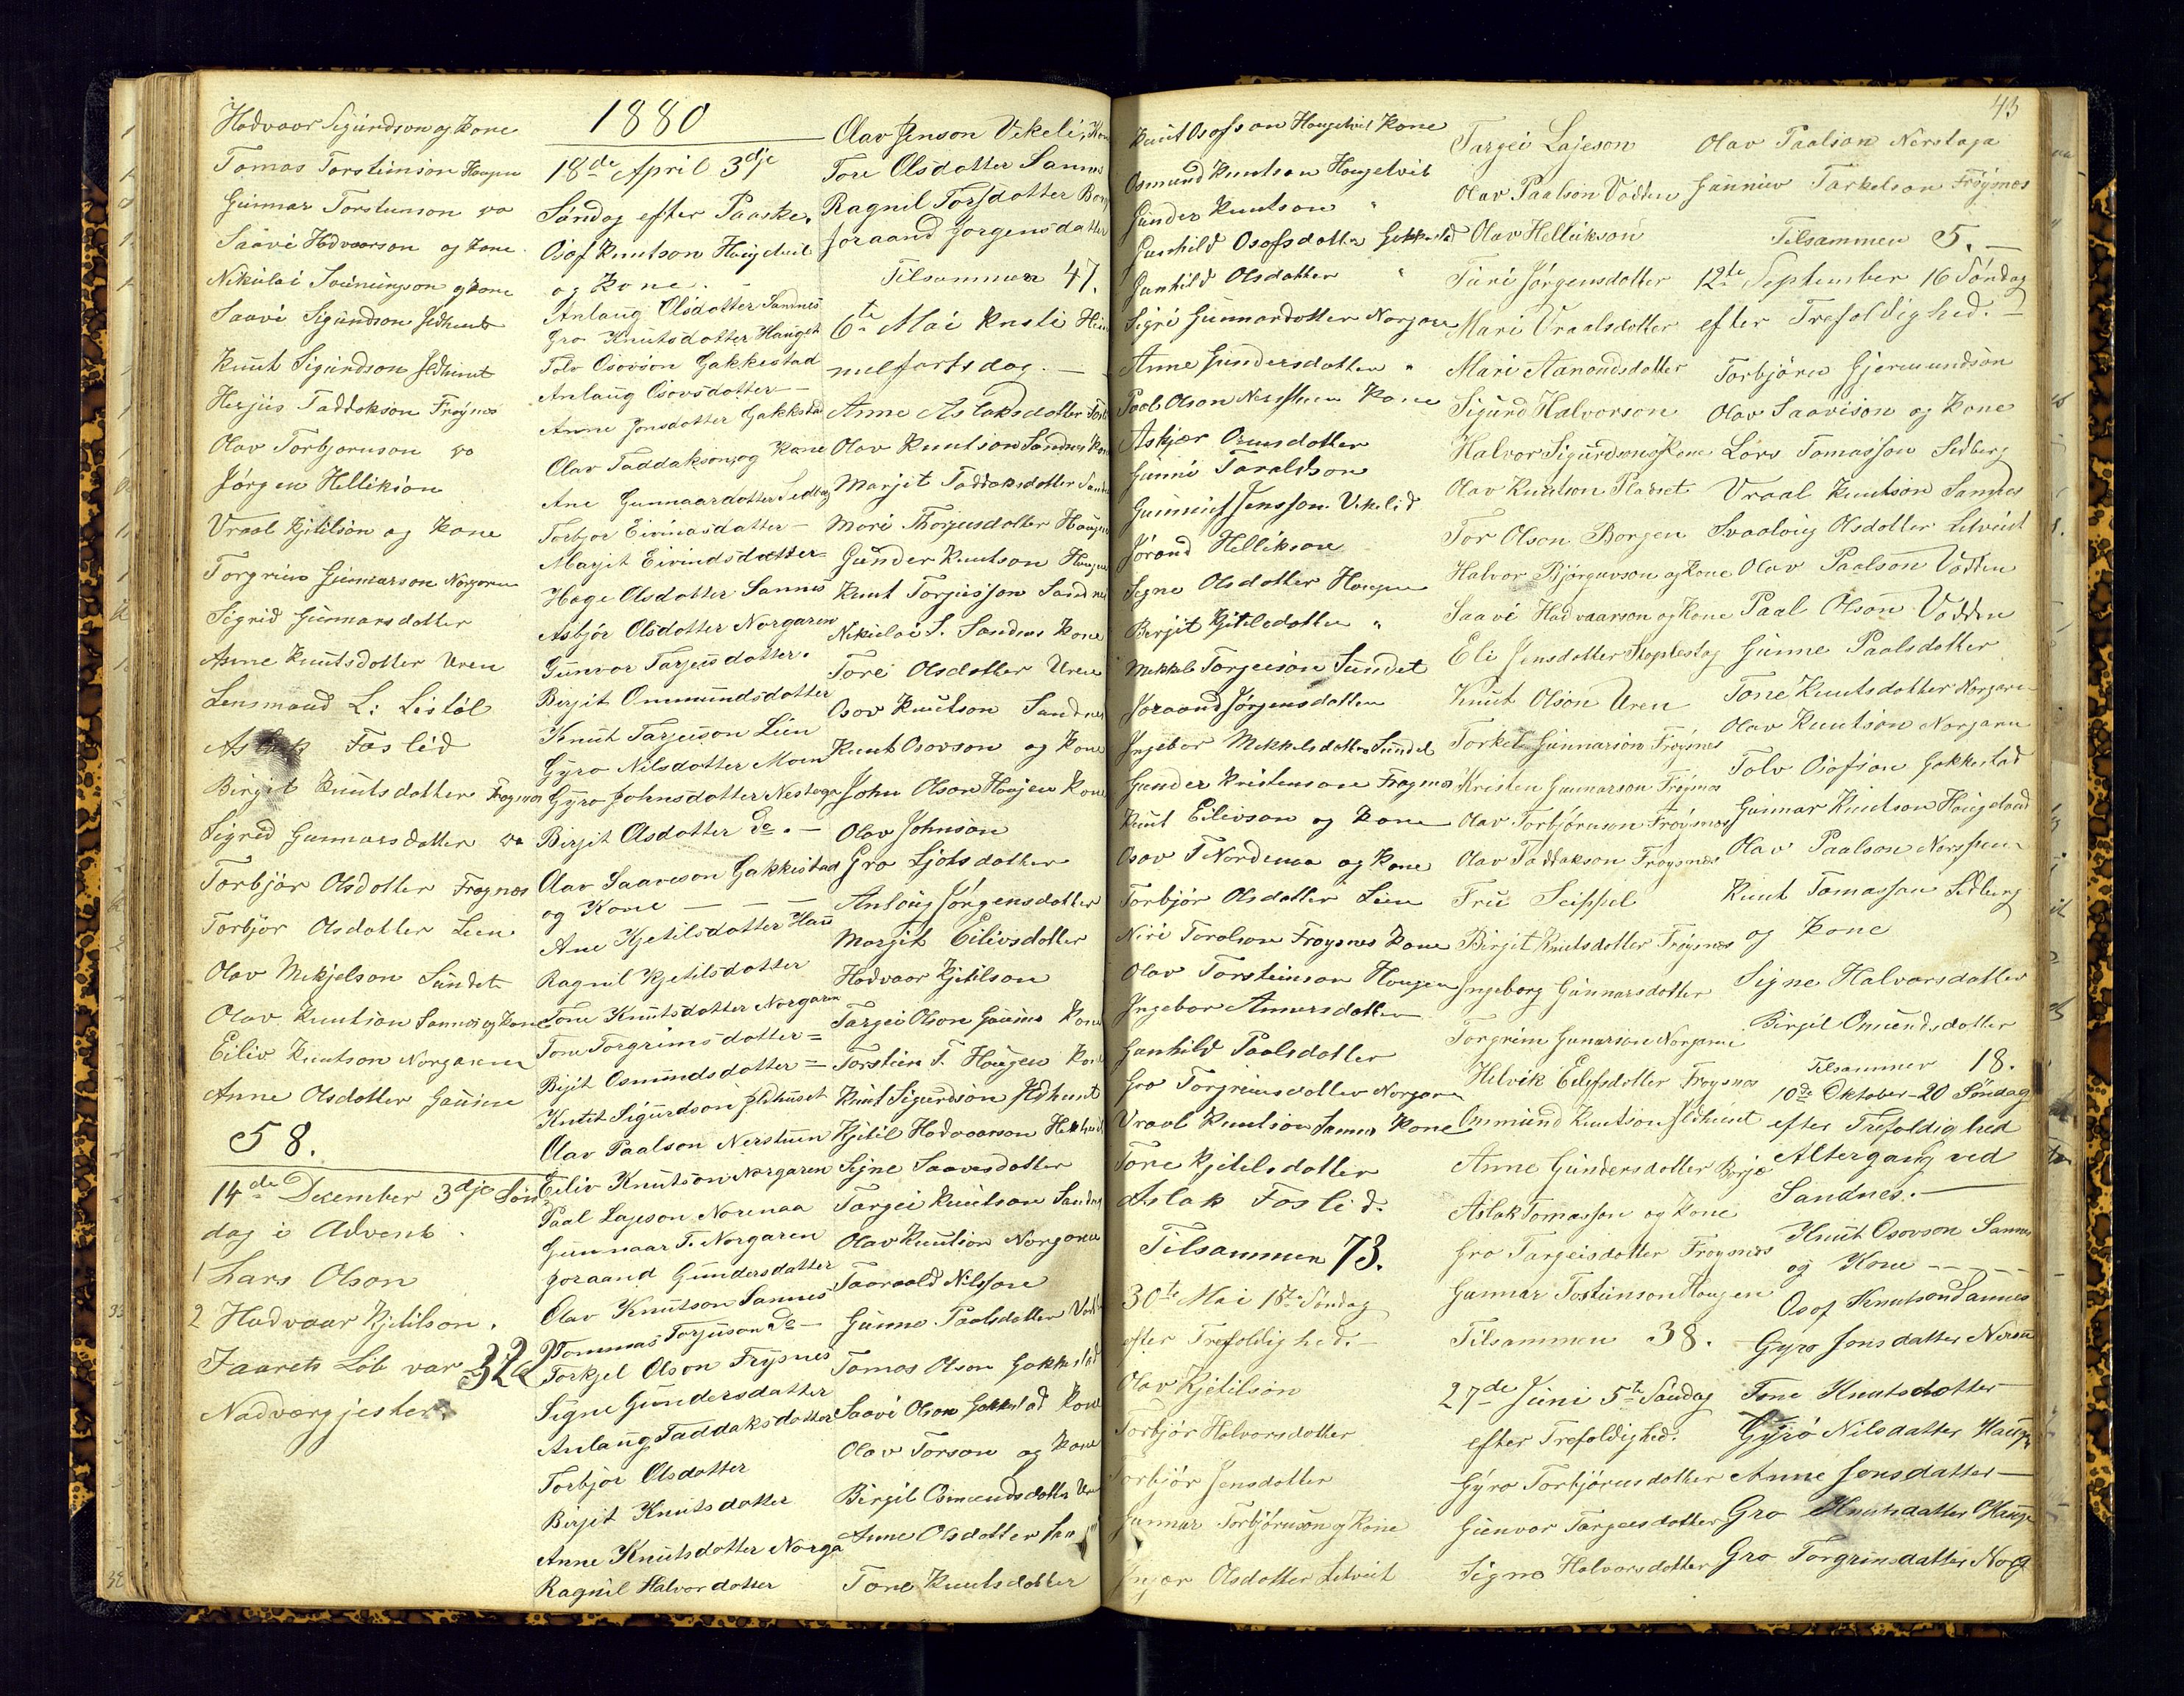 Hadvaar Sigurdson og Kone
Tomas Torsteinson Haugen
Gunnar Torsteinson do
Saavi Hadvaarson og Kone
Nikulai Sveinungson og Kone
Saavi Sigurdson Ildhuset
Knut Sigurdson Ildhuset
Herjus Taddakson Frøysnes
Olav Torbjornson do
Jórgen Hellikson
Vraal Kjetilson og Kone
Torgrim Gunnarson Norgaren
Sigrid Gunnarsdotter
Anne Knutsdotter Uren
Lensmand L: Listøl
Aslak Foslid
Birgit Knutsdotter Frøysnes
Sigrid Gunnarsdotter do
Torbjór Olsdotter Frøysnes
Torbjór Olsdotter Lien
Olav Mekjelson Sundet
Olav Knutson Sannes og Kone
Eiliv Knutson Norgaren
Anne Olsdotter
58.
14de December 3dje Søn
dag i Advent.
1 Lars Olson
2 Hadvaar Kjetilson.
Jaarets Løb var 322
Nadvergjester.
1880
18de April 3dje
Søndag efter Paaske.
Osof Knutson Haugetveit
og Kone. -
Anlaug Olsdotter Sandnes
Gro Knutsdotter Hauget
Tolv Osovson Gakkestad
Anlaug Osovsdotter -
Anne Jonsdotter Gakkestad
Olav Taddakson og Kone
Ane Gunnaardotter Sedberg
Torbjor Eivindsdatter -
Marjit Eivindsdotter
Hage Olsdotter Sannes
Asbjór Olsdotter Norgaren
Gunvor Tarjeisdotter.
Birgit Ommundsdotter
Knut Tarjeison Lien
Gyro Nilsdotter Moen
Gyro Johnsdotter Nestega
Birgit Olsdotter do. -
Olav Saaveson Gakkestad
og Kone - - -
Ane Kjetilsdotter Hau
Ragnil Kjetilsdotter
Tone Knutsdotter Norgaren
Tone Torgrimsdotter =
Birgit Osmundsdotter =
Knut Sigurdson Ildhuset
Olav Paalson Nerstuen
Eiliv Knutson Norgaren
Paal Lajeson Norenaa
Gunnaar T. Norgaren
Joraand Gundersdatter
Olav Knutson Sannes
Tommas Torjuson do -
Torkjel Olson Frysnes
Signe Gundersdatter
Anlaug Taddaksdotter
Torbjor Olsdotter
Birgit Knutsdotter
Anne Knutsdotter Norga
Ragnil Halvordotter
Olav Jenson Vekeli, Kone
Tore Olsdotter Sannes
Ragnil Torsdotter
Joraand Jorgensdatter
Tilsammen 47.
6te Mai Kristi Him
melfartsdag. -
Anne Aslaksdotter
Olav Knutson Sandnes Kone
Marjit Taddaksdotter
Mari Thorjusdotter Haugen
Gunder Knutson Haugen
Knut Torjusson Sandnes
Nikulai S. Sandnes Kone
Tore Olsdotter Uren
Osov Knutson Sandnes
Knut Osovson og Kone
John Olson Haugen Kone
Olav Johnson
Gro Ljotsdotter
Anlaug Jørgensdotter
Margit Eilivsdotter
Hadvaar Kjetilson
Targei Olson Kone
Torstein T. Haugen Kone
Knut Sigurdson Ildhuset
Kjetil Hadvaarson
Signe Saavesdotter
Targei Knutson Sandnes
Olav Knutson Norgaren
Taaraald Nilsson
Gunne Paalsdotter
Tomas Olson Gakkestad
Saavi Olson Gakkestad Kone
Olav Torson og Kone
Birgit Osmundsdotter
Anne Olsdotter
Tone Knutsdotter
43
Knut Osofson Haugetveit Kone
Osmund Knutson Haugetveit
Gunder Knutson "
Gunhild Osofsdotter Gakkestad
Gunhild Olsdotter "
Sigri Gunnardotter Norgaren
Anne Gundersdotter "
Paal Olson Nerstuen Kone
Askjær Osmundsdotter
Gunne Taraldson
Jensson Vekelid
Jórand Hellikson
Signe Olsdotter Haugen
Birgit Kjetilsdotter "
Mekkel Torjeison Sundet
Joraand Jørgensdotter
Ingebor Mekkelsdotter Sundet
Gunder Kristenson Frøysnes
Knut Eilivson og Kone
Osov T Nordenaa og Kone
Torbjór Olsdotter Lien
Niri Toralson Frøysnes Kone
Olav Torsteinson Haugen
Ingebor Annersdotter
Gunhild Paalsdotter
Gro Torgrimsdotter Norgaren
Vraal Knutson Sannes Kone
Tore Kjetilsdotter
Aslak Foslid.
Tilsammen 73.
30te Mai 1ste Søndag
efter Trefoldighed.
Olav Kjetilson
Torbjór Halvorsdotter
Torbjór Jensdotter
Gunnar Torbjørnson og Kone
Olsdotter
Targei Lajeson
Olav Paalson Vodden
Olav Hellikson
Turi Jørgensdotter
Mari Vraalsdotter
Mari Aanondsdotter
Sigurd Halvorson
Halvor Sigurdsons Kone
Olav Knutson
Tor Olson Borgen
Halvor Bjørguvson og Kone
Saavi Hadvaarson og Kone
Eli Jensdotter
Knut Olson Uren
Torkel Gunnarson Frøysnes
Kristen Gunnarson Frøysnes
Olav Torbjørnson Frøysnes
Olav Taddakson Frøysnes
Fru Seippel
Birgit Knutsdotter Frøysnes
Ingeborg Gunnarsdotter
Torgrim Gunarson Norgaren
Helvik Eilefsdotter Frøysnes
Ommund Knutson Ildhuset
Anne Gundersdotter
Aslak Tomasson og Kone
Gro Targeisdotter Frøysnes
Gunnar Tosteinson Haugen
Tilsammen 38.
27de Juni 5te Søndag
efter Trefoldighed.
Gyro Torbjørnsdotter
Gunvor Targeisdotter
Signe Halvorsdotter
Olav Paalson Nerstaga
Gunnuv Tarkelson Frøysnes
Tilsammen 5. -
12te September 16 Søndag
efter Trefoldighed. -
Torbjørn Gjermundson
Olav Saavison og Kone
Lars Tomasson Sedberg
Vraal Knutson Sandnes
Svaalaug Olsdotter
Olav Paalson Vodden
Paal Olson Vodden
Gunne Paalsdotter
Tone Knutsdotter Norgaren
Olav Knutson Norgaren
Tolv Osofson Gakkestad
Gunnar Knutson
Olav Paalson
Knut Tomasson Sedberg
og Kone
Signe Halvorsdotter
Birgit Omundsdotter
Tilsammen 18.
10de Oktober - 20 Søndag
efter Trefoldighed
Altergang ved
Sandnes. -
Knut Osovson Sannes
og Kone - - - -
Osof Knutson Sannes
Gyro Jonsdatter
Tone Knutsdotter
Gyro Nilsdatter Hauge
Anne Jonsdatter -
Gro Knutsdatter Hauge
Gro Torgrimsdatter Norg